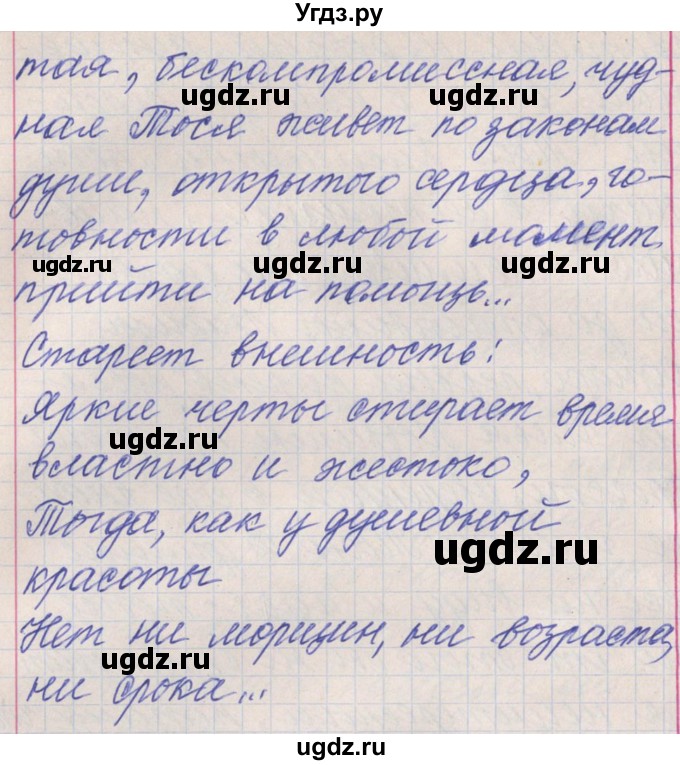 Угдз.ру
тая, бескомпромиссная, чуд-
ugdz.ru ugdz.ru
ная Тося живет по законам
души, открытого сердца, го-
ugdz.ru ugdz.ru
товности в любой момент
ugdz.ru ugdz.ru ugdz.ru
прийти на помощь...
Стареет внешность!
Яркие черты стирает время
ugdz.ru ugdz.ru
властно и жестоко,
Тогда, как у душевной
ugdz.ru
красоты
Нет ни морщин, ни возраста,
ugdz.ru ugdz.ru
ни срока...
ugdz.ru